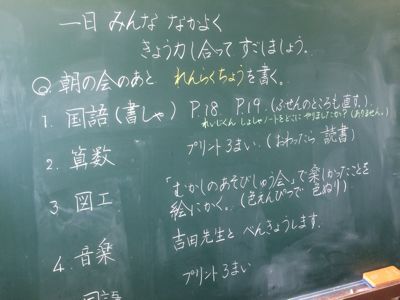 一日 みんな なかよく
きょう力し合って すごしましょう。
朝の会のあと れんらくちょうを書く。
1. 国語(書しゃ) P.18 P.19 (ふせんのところも直す。)
れいじくん しょしゃノートをどこに やりましたか?(ありません。)
2. 算数 プリント3まい。(おわったら 読書)
3. 図工 「むかしのあそびしゅう会」で楽しかったことを
絵にかく。(色えんぴつで 色ぬり)
4. 音楽 吉田先生と べんきょうします。
国語 プリント3まい